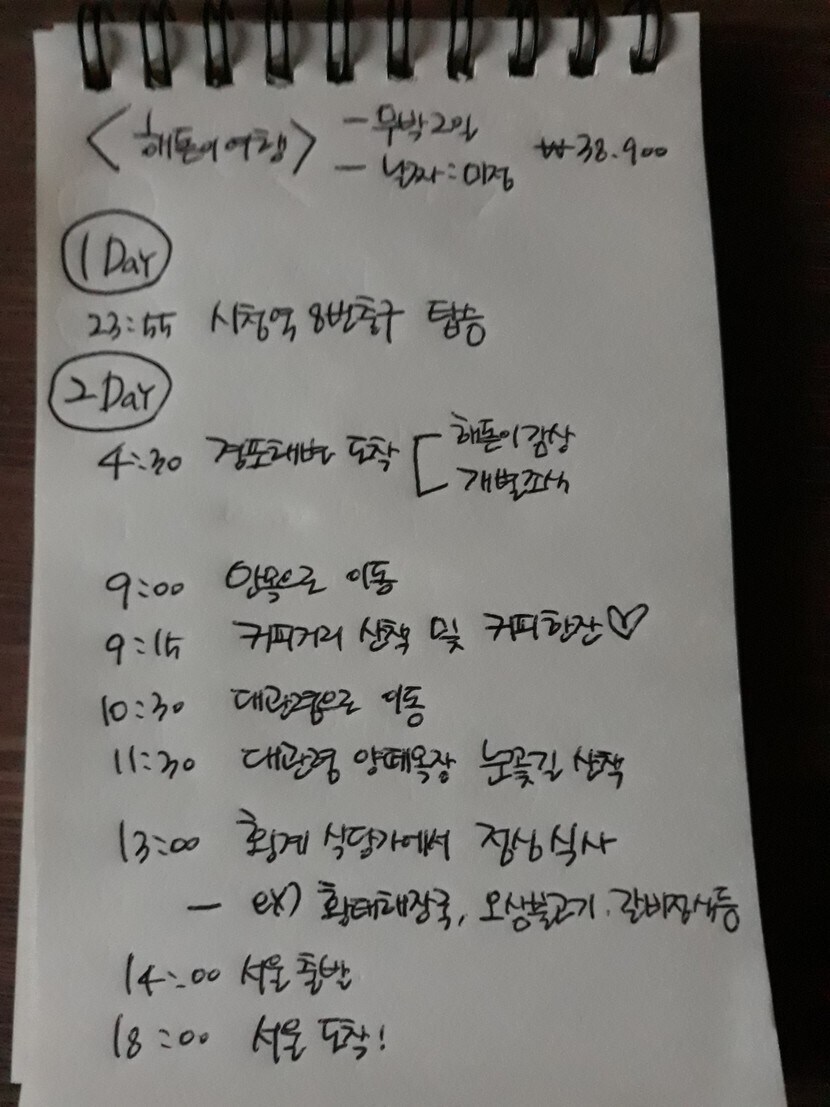 <해돋이여행> - 무박2일 ₩38.900
- 날짜:미정
1 Day
23:55 시청역 8번출구 탑승
2 Day
4:30 경포해변 도착 [ 해돋이감상
개별조식
9:00 안목으로 이동
9:15 커피거리 산책 및 커피한잔♡
10:30 대관령으로 이동
11:30 대관령 양떼목장 눈꽃길 산책
13:00 횡계 식당가에서 점심식사
- ex) 황태해장국, 오삼불고기. 갈비정식등
14:00 서울출발
18:00 서울 도착!